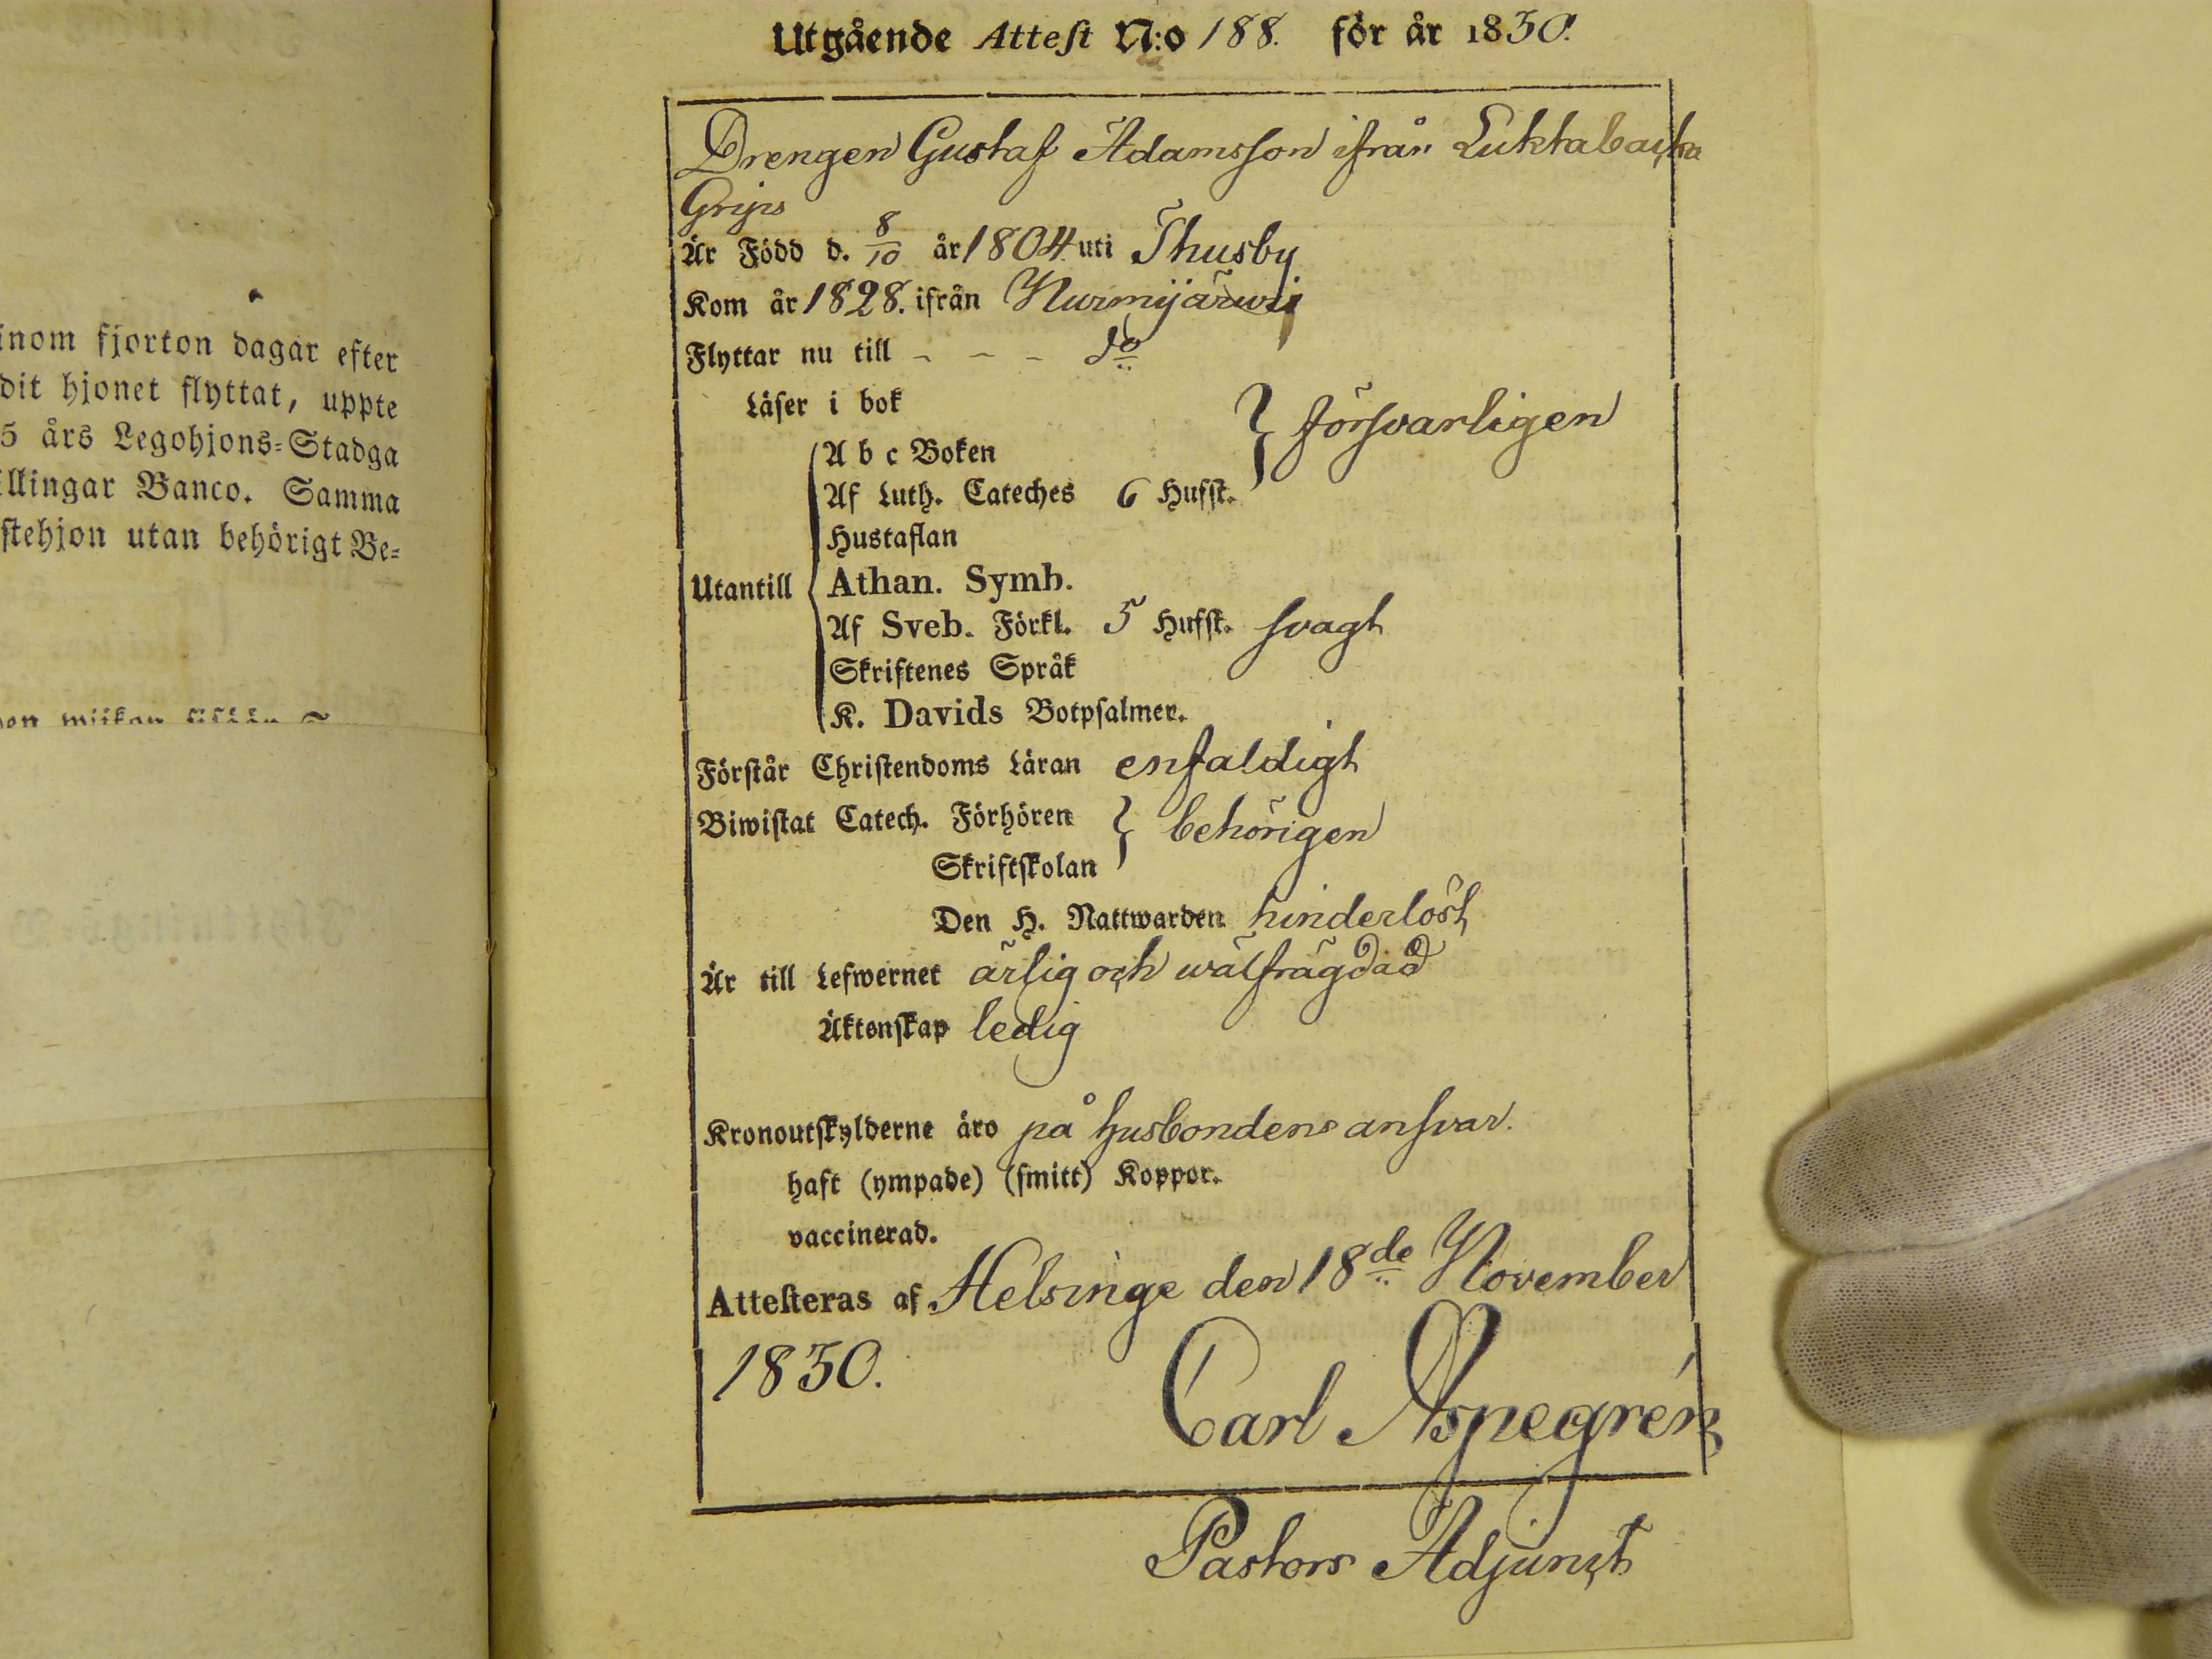 inom fjorton dagar efter
dit hjonet flyttat, uppte
5 års Legohjons-Stadga
illingar Banco. Samma
stehjon utan behörigt Be-
Utgående Attest N:o 188. för år 1830.
Drengen Gustaf Adamsson ifrån Luktabacka
Grips
Är Född d. 8/10 år 1804. uti Thusby
Kom år 1828. ifrån Nurmijärwi
Flyttar nu till - - - do
Läser i bok } försvarligen
A b c Boken
Af Luth. Cateches 6 Hufst.
Hustaflan
Utantill { Athan. Symb.
Af Sveb. Förkl. 5 Hufst. svagt
Skriftenes Språk
K. Davids Botpsalmer.
Förstår Christendoms Läran enfaldigt
Biwistat Catech. Förhören } behörigen
Skriftskolan
Den H. Nattwarden hinderlöst
Är till Lefwernet ärlig och wälfrägdad
Äktenskap ledig
Kronoutskylderne äro på husbondens ansvar.
haft (ympade) (smitt) Koppor.
vaccinerad.
Attesteras af Helsinge den 18de November
1830.
Carl Aspegrén
Pastors Adjunct